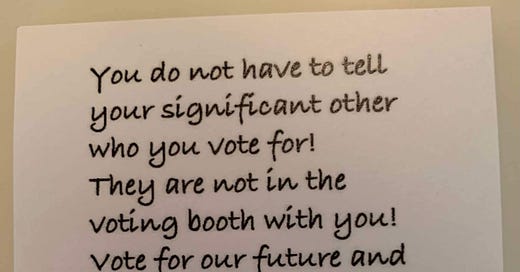 You do not have to tell
your significant other
who you vote for!
They are not in the
voting booth with you!
Vote for our future and